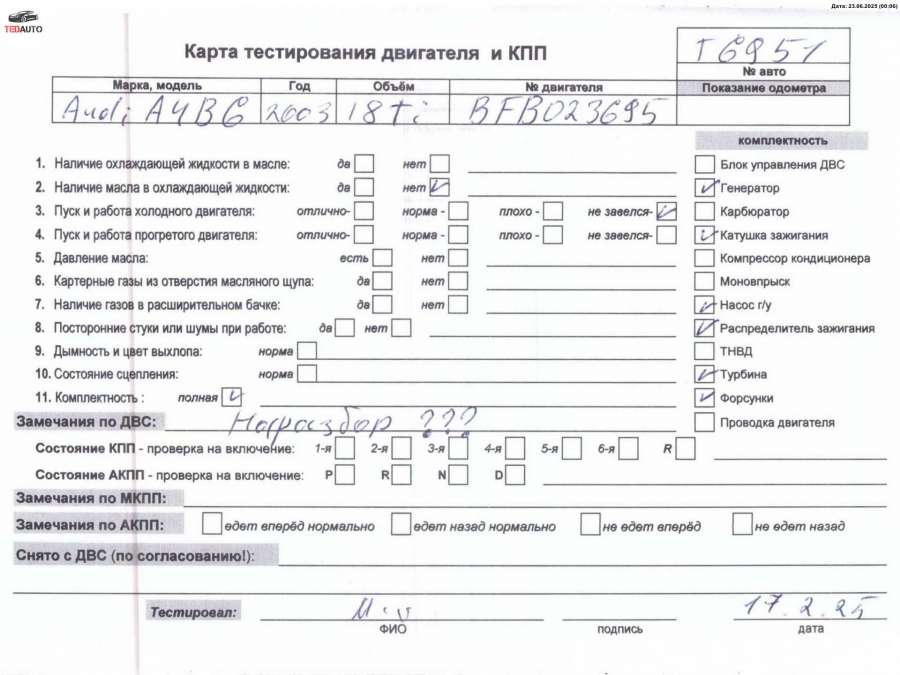 Дата: 23.06.2025 (00:06)
TEDAUTO
Карта тестирования двигателя и КПП
T6951
№ авто
Марка, модель Год Объём № двигателя Показание одометра
Audi A4B6 2003 18ti BFB023695
комплектность
1. Наличие охлаждающей жидкости в масле: да нет Блок управления ДВС
2. Наличие масла в охлаждающей жидкости: да нет Генератор
3. Пуск и работа холодного двигателя: отлично- норма - плохо - не завелся- Карбюратор
4. Пуск и работа прогретого двигателя: отлично- норма - плохо - не завелся- Катушка зажигания
5. Давление масла: есть нет Компрессор кондиционера
6. Картерные газы из отверстия масляного щупа: да нет Моновпрыск
7. Наличие газов в расширительном бачке: да нет Насос г/у
8. Посторонние стуки или шумы при работе: да нет Распределитель зажигания
9. Дымность и цвет выхлопа: норма ТНВД
10. Состояние сцепления: норма Турбина
11. Комплектность : полная Форсунки
Замечания по ДВС: На разбор ??? Проводка двигателя
Состояние КПП - проверка на включение: 1-я 2-я 3-я 4-я 5-я 6-я R
Состояние АКПП - проверка на включение: P R N D
Замечания по МКПП:
Замечания по АКПП: едет вперёд нормально едет назад нормально не едет вперёд не едет назад
Снято с ДВС (по согласованию!):
Тестировал: 17.2.25
ФИО подпись дата